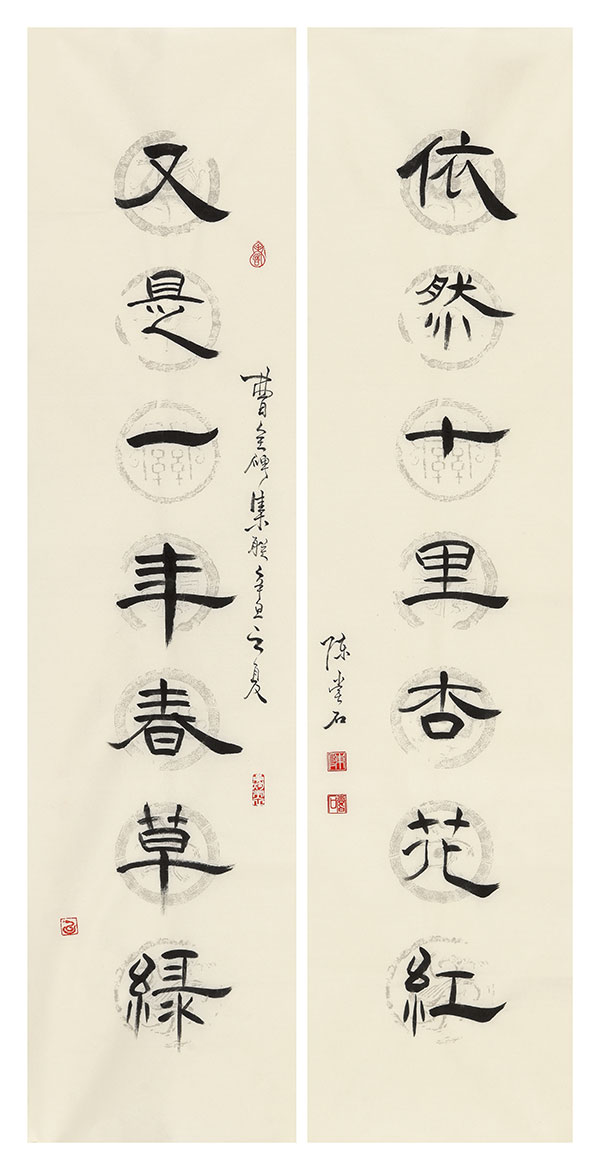 依然十里杏花紅
陳石
曹全碑集聯辛丑之夏
又是一年春草緑